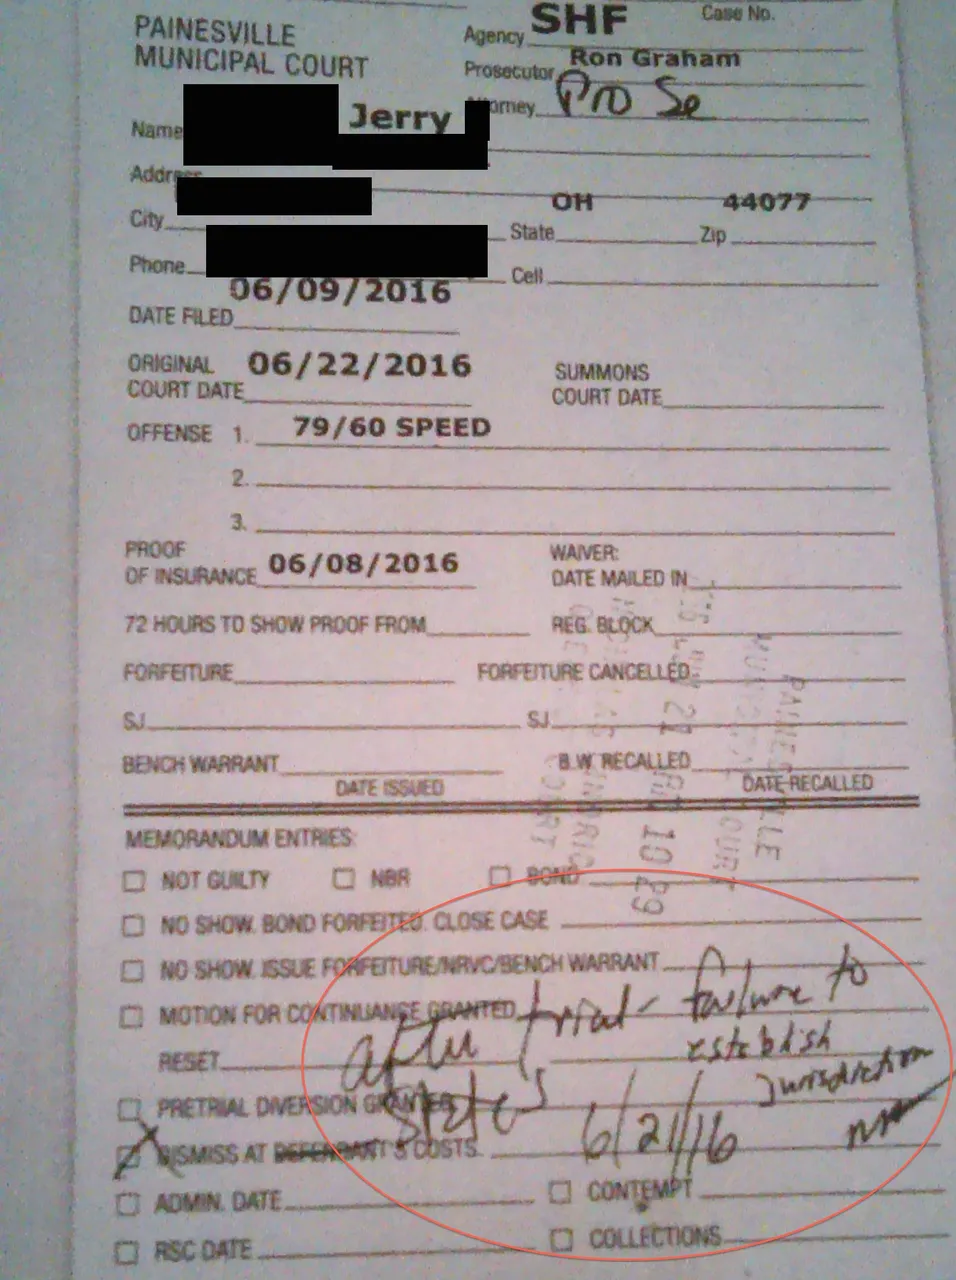 PAINESVILLE
MUNICIPAL COURT
Agency SHF Case No.
Prosecutor Ron Graham
Attorney Pro Se
Name Jerry
Address
City State OH Zip 44077
Phone Cell
DATE FILED 06/09/2016
ORIGINAL
COURT DATE 06/22/2016
SUMMONS
COURT DATE
OFFENSE 1. 79/60 SPEED
2.
3.
PROOF
OF INSURANCE 06/08/2016
WAIVER:
DATE MAILED IN
72 HOURS TO SHOW PROOF FROM REG. BLOCK
FORFEITURE FORFEITURE CANCELLED
SJ SJ
BENCH WARRANT B.W RECALLED
DATE ISSUED DATE RECALLED
PAINESVILLE
MUNICIPAL COURT
21 10 29
MEMORANDUM ENTRIES:
NOT GUILTY NBR BOND
NO SHOW. BOND FORFEITED. CLOSE CASE
NO SHOW. ISSUE FORFEITURE/NRVC/BENCH WARRANT
MOTION FOR CONTINUANCE GRANTED
RESET
after trial - failure to
establish
jurisdiction
PRETRIAL DIVERSION GRANTED
State's
6/21/16
DISMISS AT DEFENDANT'S COSTS.
ADMIN. DATE CONTEMPT
RSC DATE COLLECTIONS